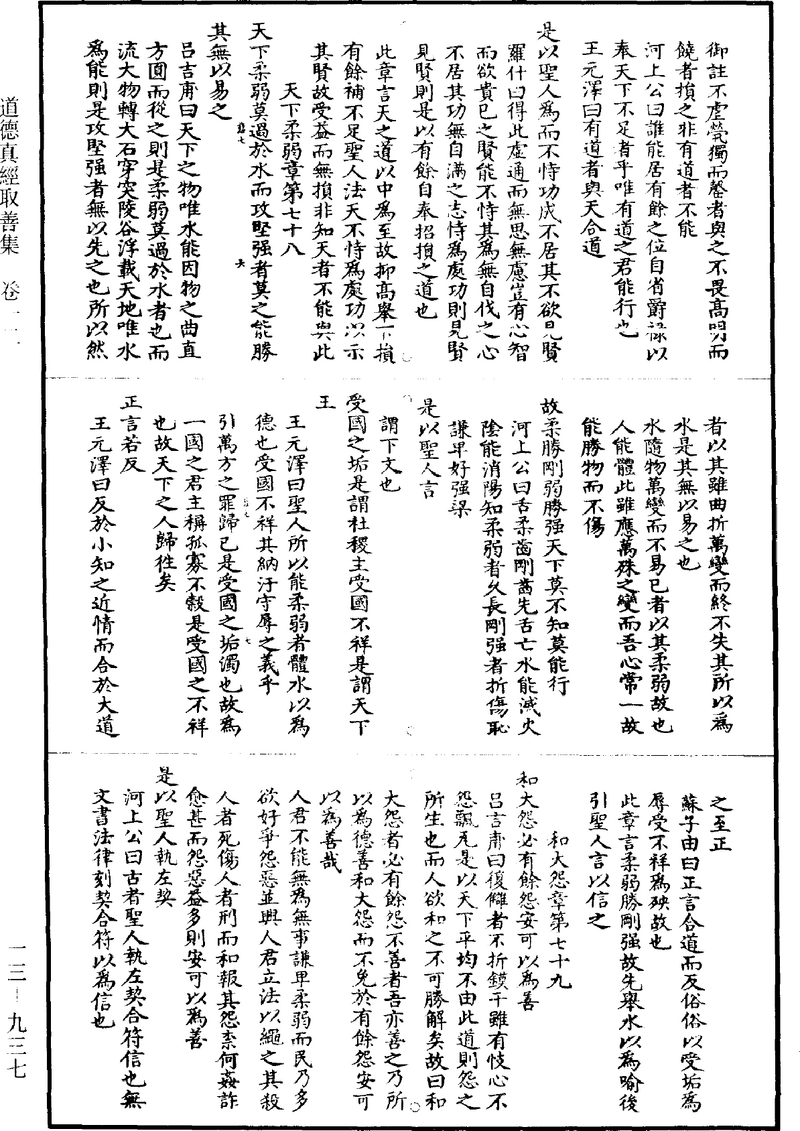 御註不虐煢獨而罄者與之不畏高明而
饒者損之非有道者不能
河上公曰誰能居有餘之位自省爵祿以
奉天下不足者乎唯有道之君能行也
王元澤曰有道者與天合道
是以聖人為而不恃功成不居其不欲見賢
羅什曰得此虛通而無思無慮豈有心智
而欲貴己之賢能不恃其為無自伐之心
不居其功無自滿之志恃為處功則見賢
見賢則是以有餘自奉招損之道也
此章言天之道以中為至故抑高舉下損
有餘補不足聖人法天不恃為處功以示
其賢故受益而無損非知天者不能與此
天下柔弱章第七十八
天下柔弱莫過於水而攻堅强者莫之能勝
其無以易之
呂吉甫曰天下之物唯水能因物之曲直
方圓而從之則是柔弱莫過於水者也而
流大物轉大石穿突陵谷浮載天地唯水
為能則是攻堅强者無以先之也所以然
者以其雖曲折萬變而終不失其所以為
水是其無以易之也
水隨物萬變而不易己者以其柔弱故也
人能體此雖應萬殊之變而吾心常一故
能勝物而不傷
故柔勝剛弱勝强天下莫不知莫能行
河上公曰舌柔齒剛齒先舌亡水能滅火
陰能消陽知柔弱者久長剛强者折傷恥
謙卑好强梁
是以聖人言
謂下文也
受國之垢是謂社稷主受國不祥是謂天下
王
王元澤曰聖人所以能柔弱者體水以為
德也受國不祥其納汙守辱之義乎
引萬方之罪歸己是受國之垢濁也故為
一國之君主稱孤寡不穀是受國之不祥
也故天下之人歸往矣
正言若反
王元澤曰反於小知之近情而合於大道
之至正
蘇子由曰正言合道而反俗俗以受垢為
辱受不祥為殃故也
此章言柔弱勝剛强故先舉水以為喻後
引聖人言以信之
和大怨章第七十九
和大怨必有餘怨安可以為善
呂吉甫曰復讎者不折鏌干雖有忮心不
怨飄瓦是以天下平均不由此道則怨之
所生也而人欲和之不可勝解矣故曰和
大怨者必有餘怨不善者吾亦善之乃所
以為德善和大怨而不免於有餘怨安可
以為善哉
人君不能無為無事謙卑柔弱而民乃多
欲好爭怨惡並興人君立法以繩之其殺
人者死傷人者刑而和報其怨柰何姦詐
愈甚而怨惡益多則安可以為善
是以聖人執左契
河上公曰古者聖人執左契合符信也無
文書法律刻契合符以為信也
道德真經取善集 卷一二
一三－九三七